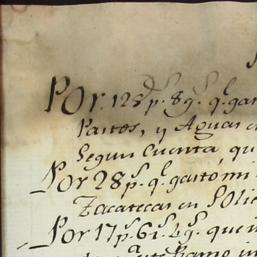 Por 128 p.s 8 g.s q.e gas
Pastos, y Aguas e
Segun Cuenta, qu
Por 28 p.s q.e gastó mi
Zacatecas en Solic
Por 17 p.s 6 r.s 2 g.s que i